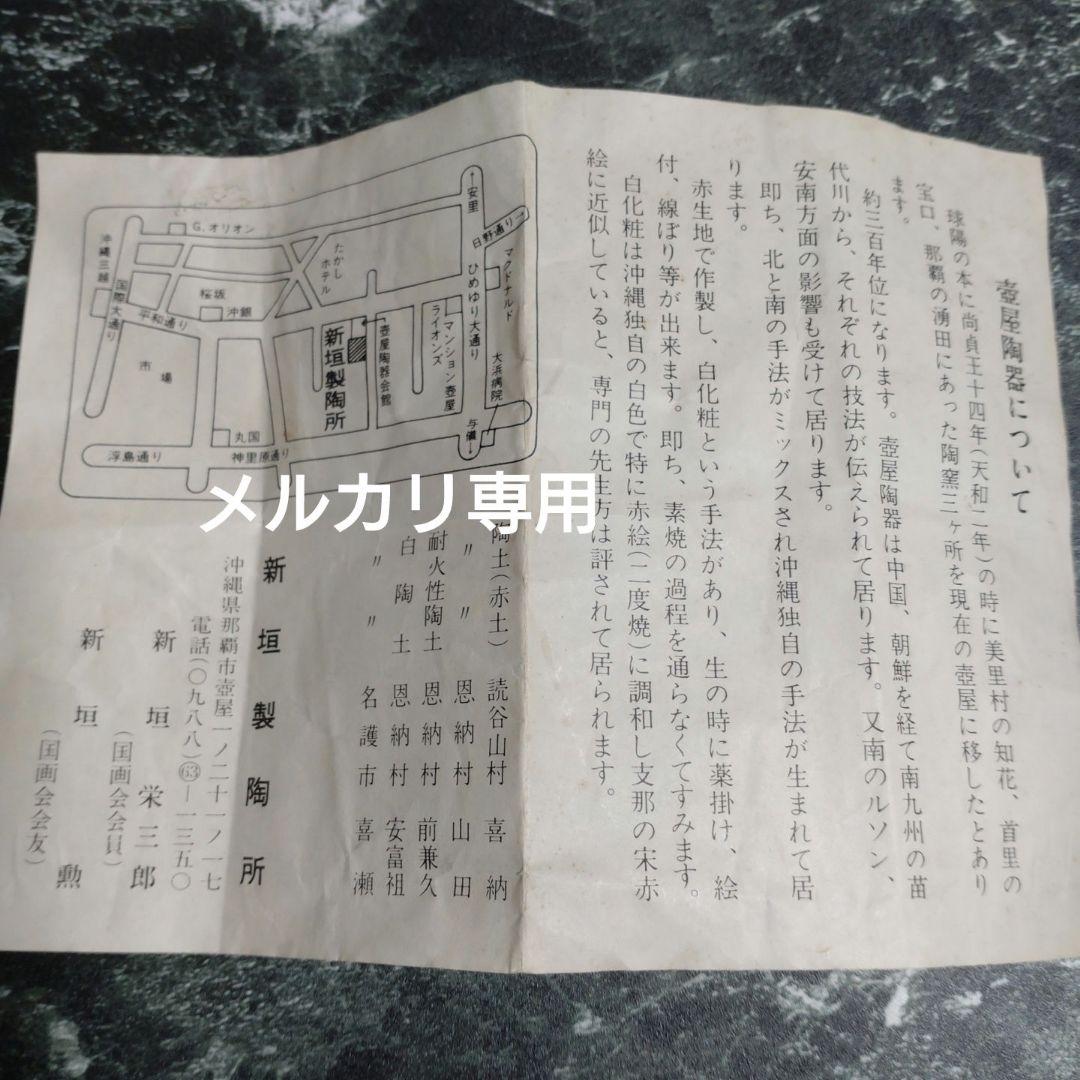 壺屋陶器について
球陽の本に尚貞王十四年(天和二年)の時に美里村の知花、首里の
宝口、那覇の湧田にあった陶窯三ヶ所を現在の壺屋に移したとあり
ます。
約三百年位になります。壺屋陶器は中国、朝鮮を経て南九州の苗
代川から、それぞれの技法が伝えられて居ります。又南のルソン、
安南方面の影響も受けて居ります。
即ち、北と南の手法がミックスされ沖縄独自の手法が生まれて居
ります。
赤生地で作製し、白化粧という手法があり、生の時に薬掛け、絵
付、線ぼり等が出来ます。即ち、素焼の過程を通らなくてすみます。
白化粧は沖縄独自の白色で特に赤絵(二度焼)に調和し支那の宋赤
絵に近似していると、専門の先生方は評されて居られます。
←安里
日野通り→
マクドナルド
ひめゆり大通り
大浜病院
与儀→
G.オリオン
たかし
ホテル
桜坂
沖銀
沖縄三越
国際大通り
平和通り
市場
新垣製陶所
壺屋陶器会館
ライオンズ
マンション壺屋
丸国
神里原通り
浮島通り
メルカリ専用
陶土(赤土) 読谷山村 喜納
〃 〃 恩納村 山田
耐火性陶土 恩納村 前兼久
白陶土 恩納村 安富祖
〃 〃 名護市 喜瀬
新垣製陶所
沖縄県那覇市壺屋一ノ二十一ノ一七
電話(〇九八八)63一一三五〇
新垣栄三郎
(国画会会員)
新垣勲
(国画会会友)